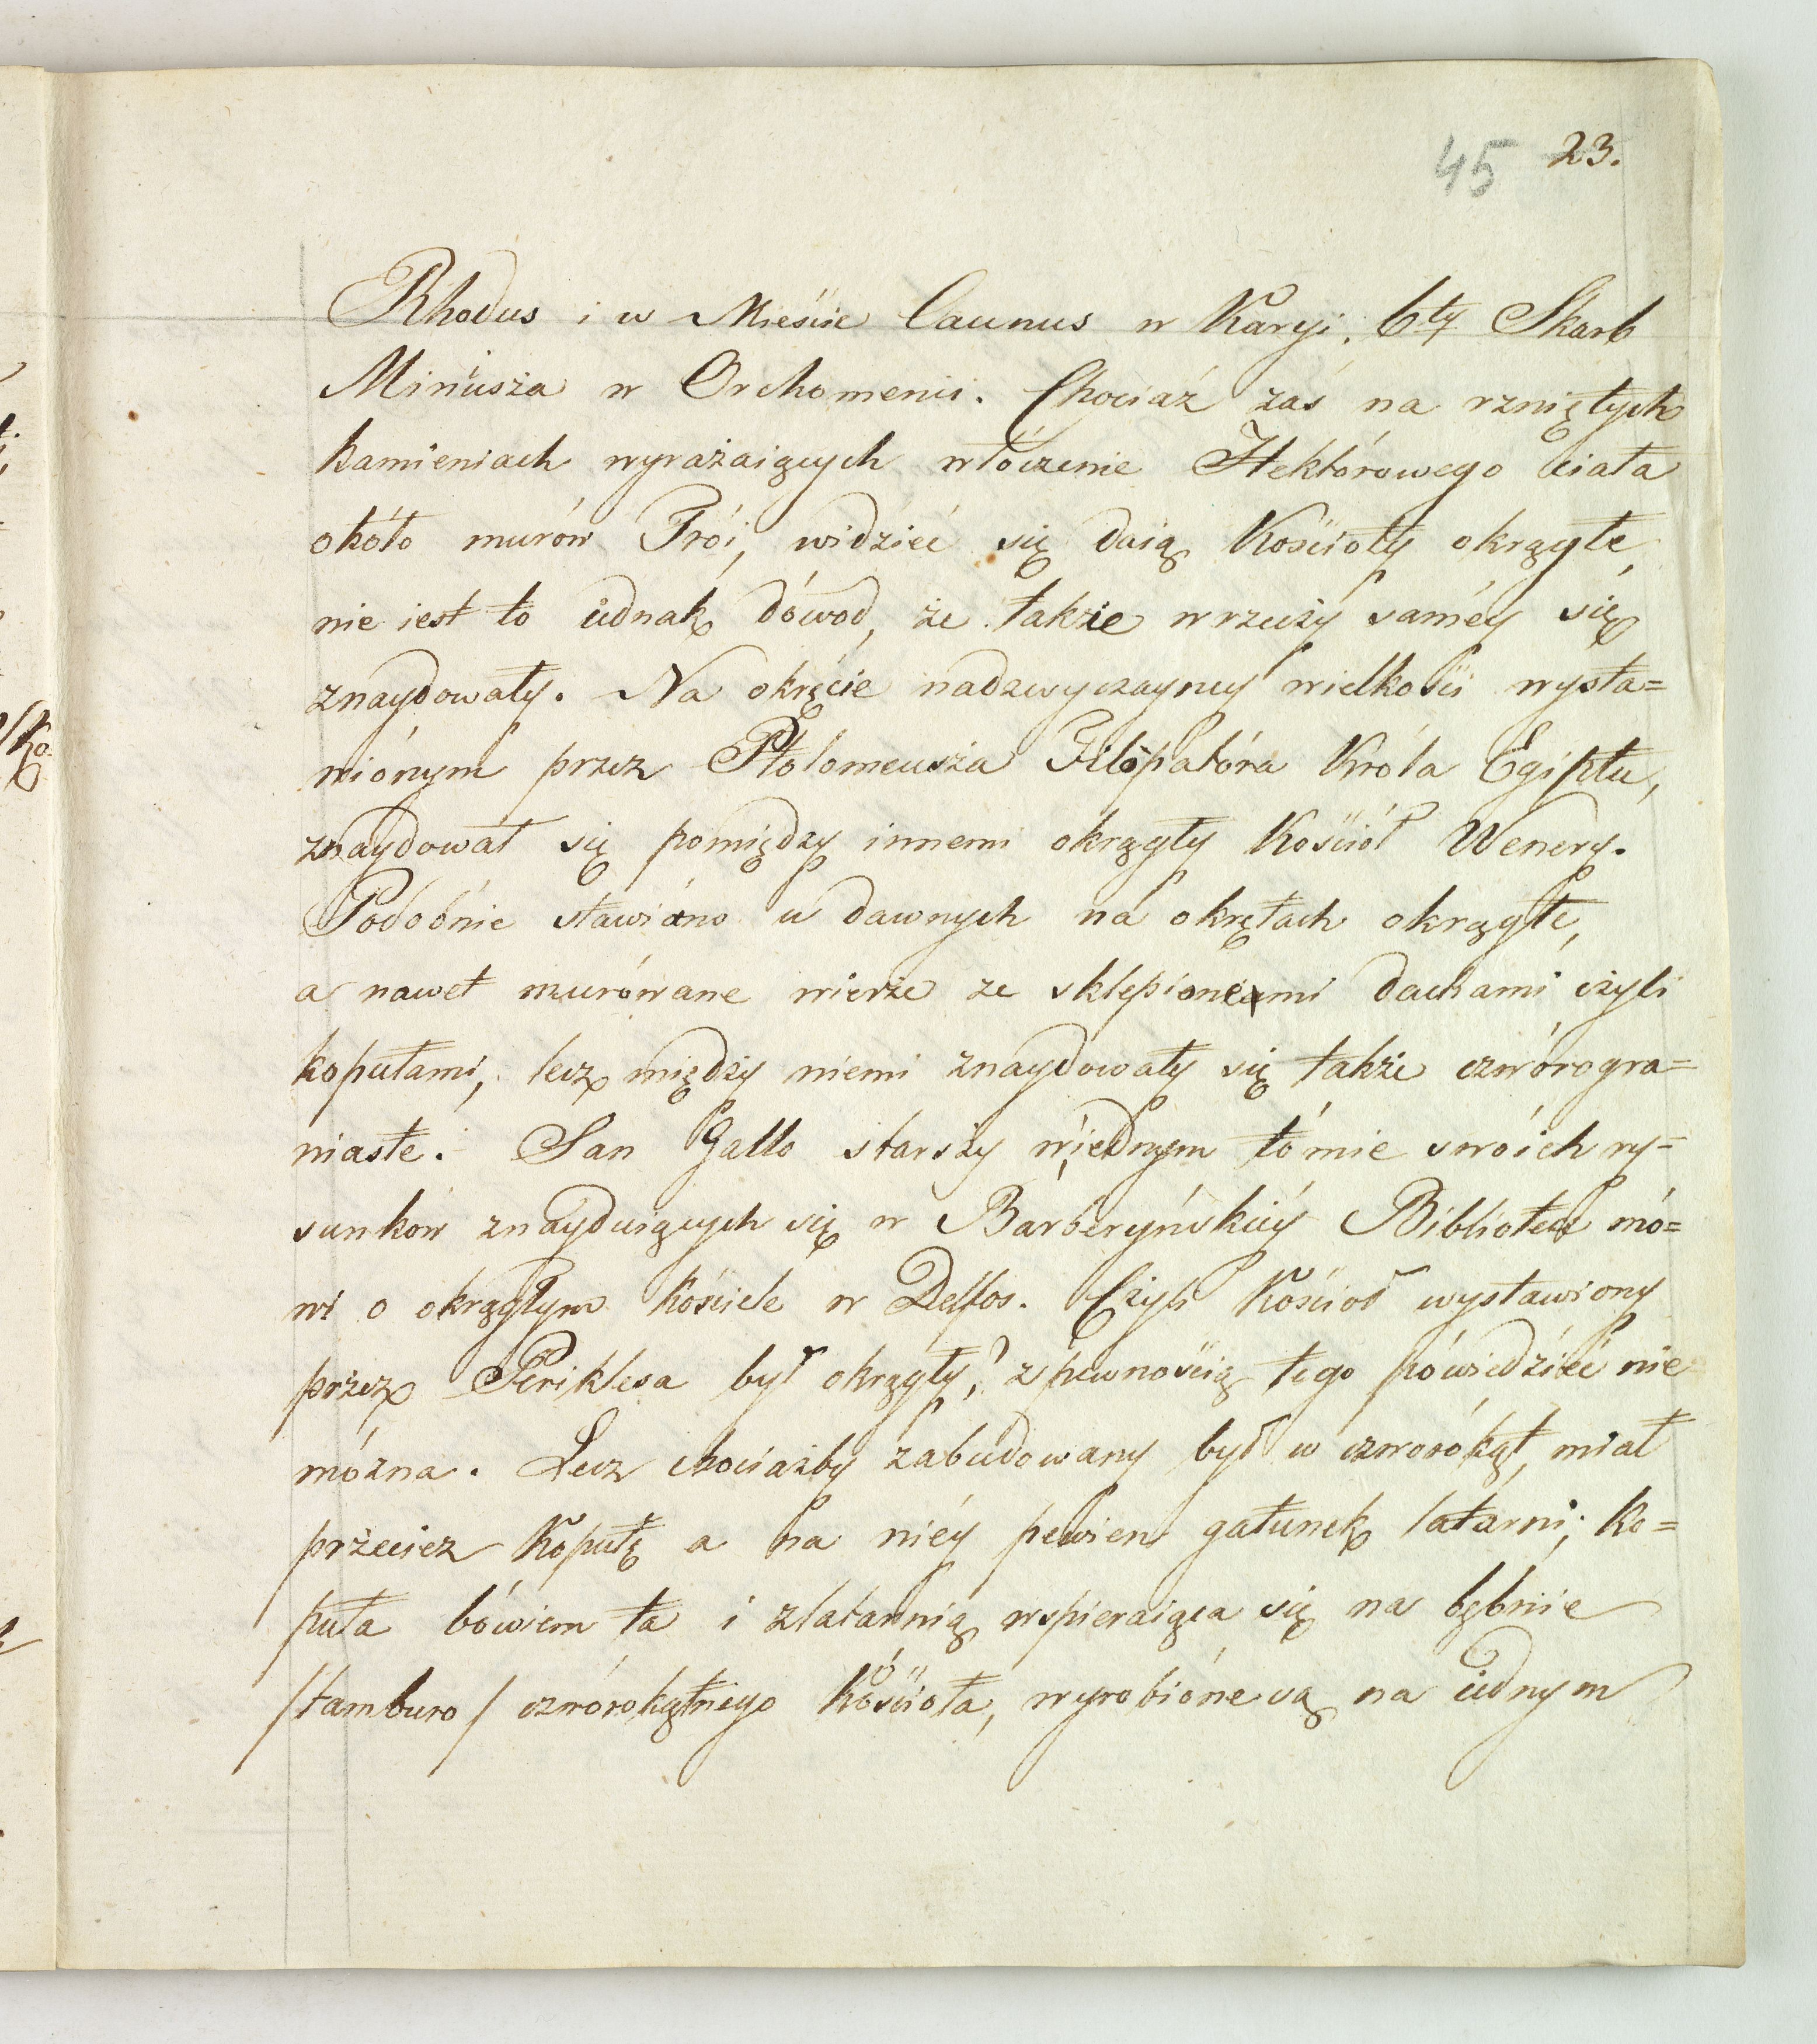 45 23.
Rhodus i w Mieście Caunus w Karyi. 6ty Skarb
Minusża w Orchomenis. Chociaż zaś na rzniętych
kamieniach wyrażaiących włóczenie Hektórowego ciała
około murów Trói, widzieć się daią Kościoły okrągłe,
nie iest to iednak dówod, że także w rzeczy saméy się
znaydowały. Na okręcie nadzwyczayney wielkości wysta=
wiónym przez Ptolomeusża Filópatóra Króla Egiptu,
znaydował się pomiędzy innemi okrągły Kościół Wenery.
Podobnie stawiano u dawnych na okrętach okrągłe,
a nawet murówane wieże ze sklepionemi dachami czyli
kopułami, lecz między niemi znaydowały się także czwórogra=
niaste. San Gallo starszy w iednym tómie swóich ry=
sunków znayduiących się w Barberyńskiéy Bibliotece mó=
wi o okrągłym kościele w Delfos. Czyli Kościół wystawiony
przez Periklesa był okrągły,? z pewnością tego pówiedzieć nie
można. Lecz chociażby zabudowany był w czworókąt, miał
przecież Kopułę a na niéy pewien gatunek latarni; ko=
puła bówiem ta i zlatarnią wspieraiąca się na bębnie
/tamburo/ czwórokątnego Kościoła, wyrobióne są na iednym